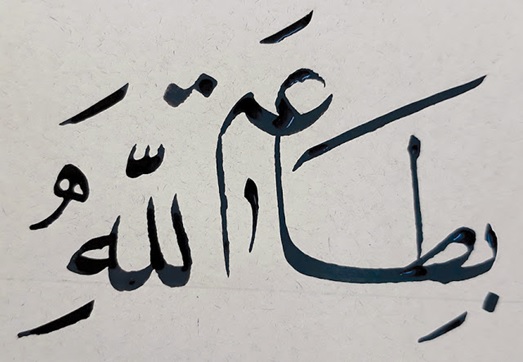 بِطَاعَةِ اللَّهِ